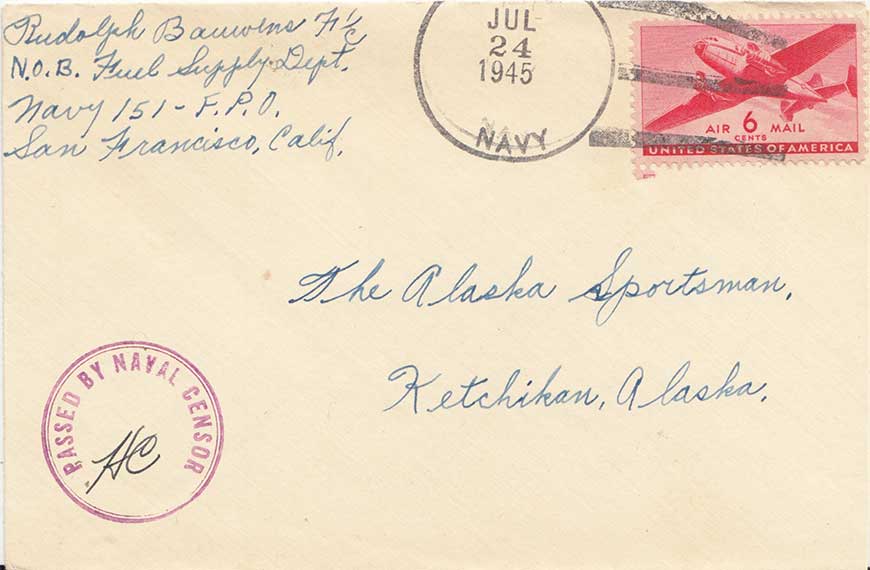 Rudolph Bauwens F 1/c
N.O.B. Fuel Supply Dept.
Navy 151 - F.P.O.
San Francisco, Calif.
JUL
24
1945
NAVY
AIR 6 MAIL
CENTS
UNITED STATES OF AMERICA
The Alaska Sportsman,
Ketchikan, Alaska.
PASSED BY NAVAL CENSOR
HC